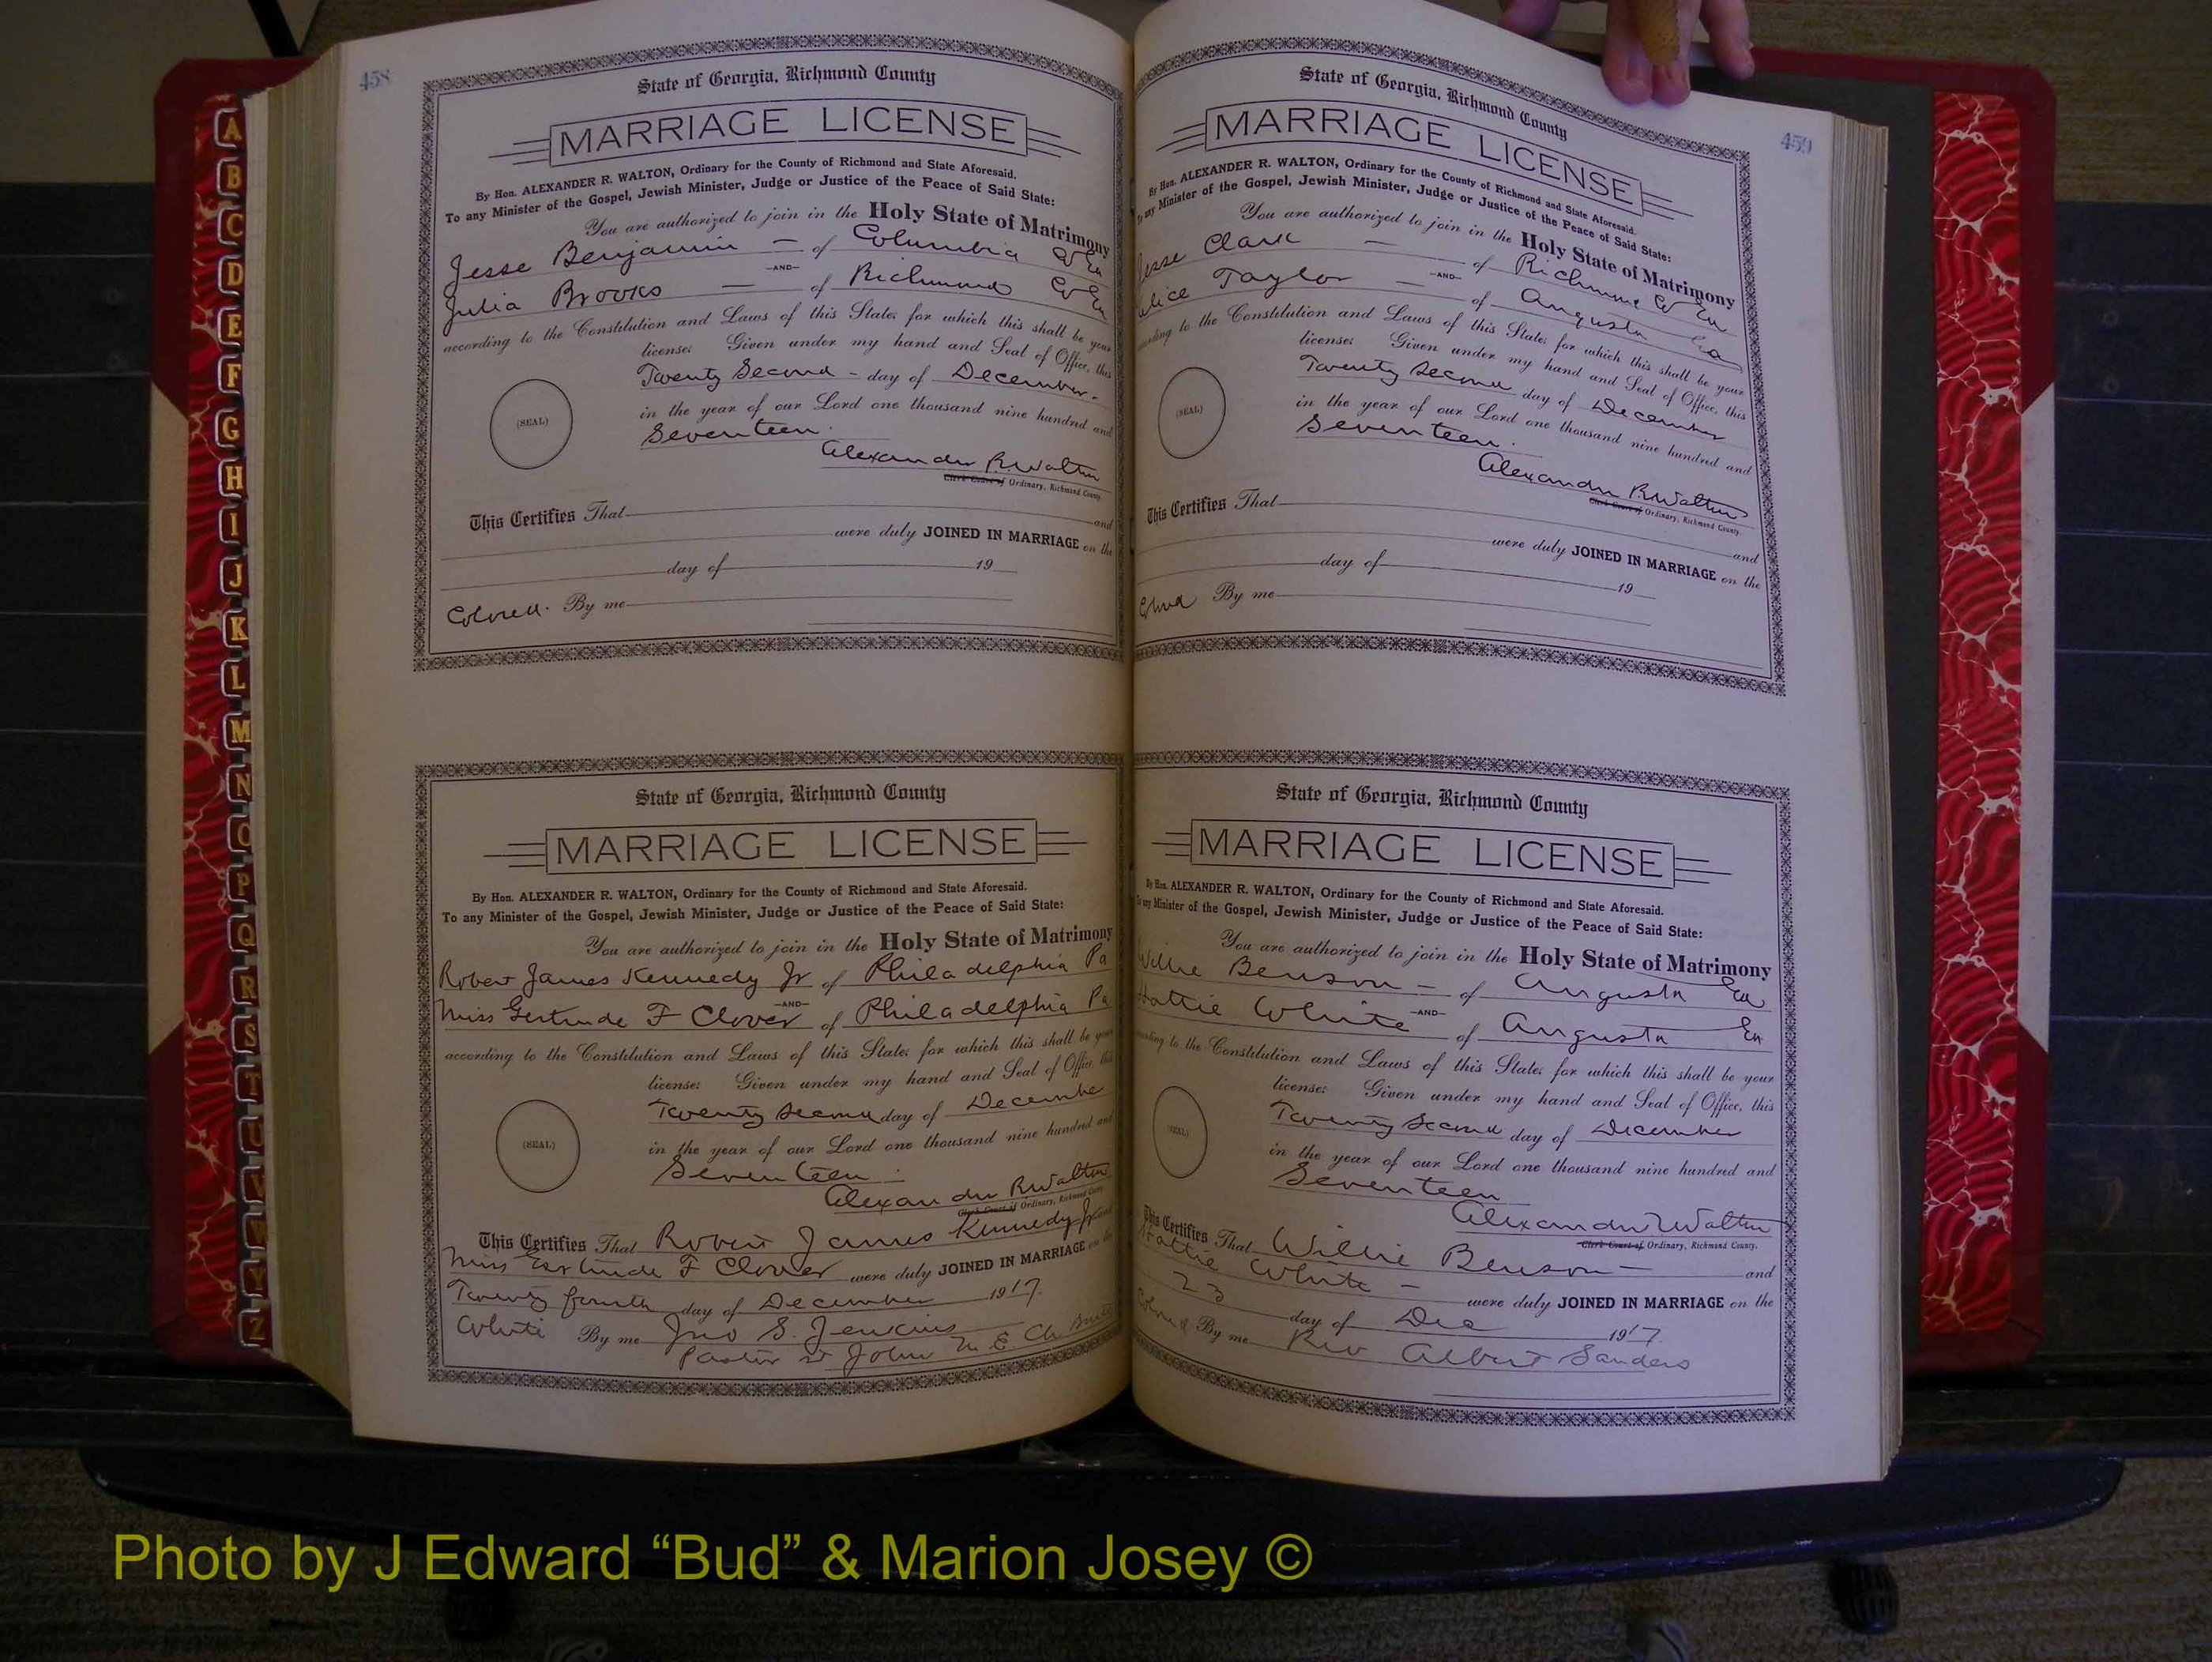 458
State of Georgia, Richmond County
MARRIAGE LICENSE
By Hon. ALEXANDER R. WALTON, Ordinary for the County of Richmond and State Aforesaid.
To any Minister of the Gospel, Jewish Minister, Judge or Justice of the Peace of Said State:
You are authorized to join in the Holy State of Matrimony
Jesse Benjamin - of Columbia Co Ga
-AND-
Julia Brooks - of Richmond Co Ga
according to the Constitution and Laws of this State; for which this shall be your
license; Given under my hand and Seal of Office, this
Twenty Second - day of December
(SEAL)
in the year of our Lord one thousand nine hundred and
Seventeen.
Alexander R Walton
Clerk Court of Ordinary, Richmond County
This Certifies That and
were duly JOINED IN MARRIAGE on the
day of 19
Colored. By me
State of Georgia, Richmond County
MARRIAGE LICENSE
By Hon. ALEXANDER R. WALTON, Ordinary for the County of Richmond and State Aforesaid.
To any Minister of the Gospel, Jewish Minister, Judge or Justice of the Peace of Said State:
You are authorized to join in the Holy State of Matrimony
Robert James Kennedy Jr of Philadelphia Pa
-AND-
Miss Gertrude F Clover of Philadelphia Pa
according to the Constitution and Laws of this State; for which this shall be your
license; Given under my hand and Seal of Office, this
Twenty Second day of Decembe
(SEAL)
in the year of our Lord one thousand nine hundred and
Seventeen
Alexander R Walton
Clerk Court of Ordinary, Richmond County
This Certifies That Robert James Kennedy Jr and
Miss Gertrude F Clover were duly JOINED IN MARRIAGE on the
Twenty fourth day of December 1917.
White By me Jno S. Jenkins
Pastor St John M. E. Ch
459
State of Georgia, Richmond County
MARRIAGE LICENSE
By Hon. ALEXANDER R. WALTON, Ordinary for the County of Richmond and State Aforesaid.
To any Minister of the Gospel, Jewish Minister, Judge or Justice of the Peace of Said State:
You are authorized to join in the Holy State of Matrimony
Jesse Clark - of Richmond Co Ga
-AND-
Alice Taylor - of Augusta Ga
according to the Constitution and Laws of this State; for which this shall be your
license; Given under my hand and Seal of Office, this
Twenty Second day of December
(SEAL)
in the year of our Lord one thousand nine hundred and
Seventeen.
Alexander R Walton
Clerk Court of Ordinary, Richmond County.
This Certifies That and
were duly JOINED IN MARRIAGE on the
day of 19
By me
State of Georgia, Richmond County
MARRIAGE LICENSE
By Hon. ALEXANDER R. WALTON, Ordinary for the County of Richmond and State Aforesaid.
To any Minister of the Gospel, Jewish Minister, Judge or Justice of the Peace of Said State:
You are authorized to join in the Holy State of Matrimony
Willie Benson - of Augusta Ga
-AND-
Hattie White of Augusta Ga
according to the Constitution and Laws of this State; for which this shall be your
license; Given under my hand and Seal of Office, this
Twenty Second day of December
(SEAL)
in the year of our Lord one thousand nine hundred and
Seventeen
Alexander R Walton
Clerk Court of Ordinary, Richmond County.
This Certifies That Willie Benson - and
Hattie White - were duly JOINED IN MARRIAGE on the
23 day of Dec 1917.
Colored By me Rev Albert Sanders
A
B
C
D
E
F
G
H
I
J
K
L
M
N
O
P
Q
R
S
T
U
V
W
Y
Z
Photo by J Edward “Bud” & Marion Josey ©